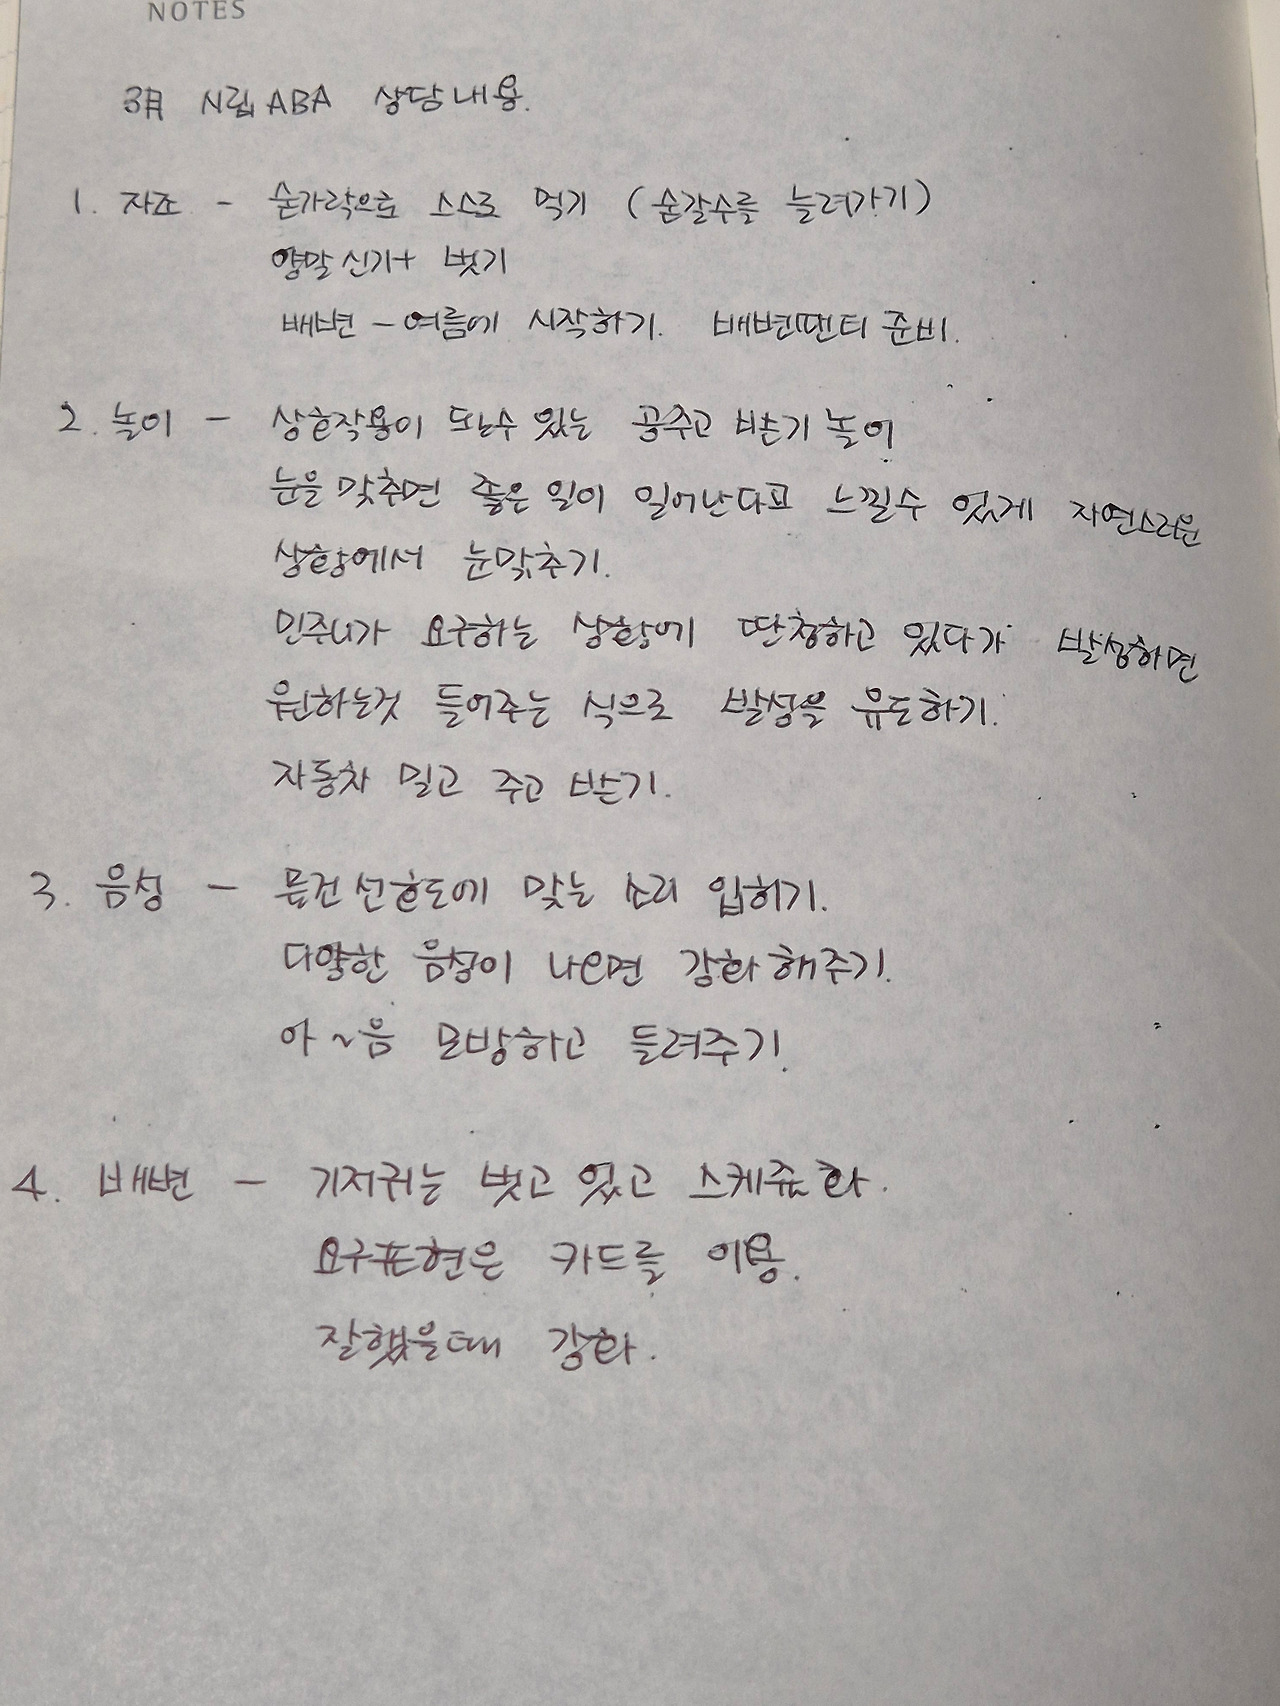 NOTES
3月 시립 ABA 상담내용.
1. 자조 - 숟가락으로 스스로 먹기 (숟갈수를 늘려가기)
양말신기+ 벗기
배변 - 여름에 시작하기. 배변팬티 준비.
2. 놀이 - 상호작용이 되는수 있는 공주고 받기 놀이
눈을 맞추면 좋은 일이 일어난다고 느낄수 있게 자연스러운
상황에서 눈맞추기.
민주니가 요구하는 상황에 딴청하고 있다가 발성하면
원하는것 들어주는 식으로 발성을 유도하기.
자동차 밀고 주고 받기.
3. 음성 - 물건선호도에 맞는 소리 입히기.
다양한 음성이 나오면 강화해주기.
아~음 모방하고 들려주기.
4. 배변 - 기저귀는 벗고 있고 스케쥴화.
요구표현은 카드를 이용.
잘했을때 강화.